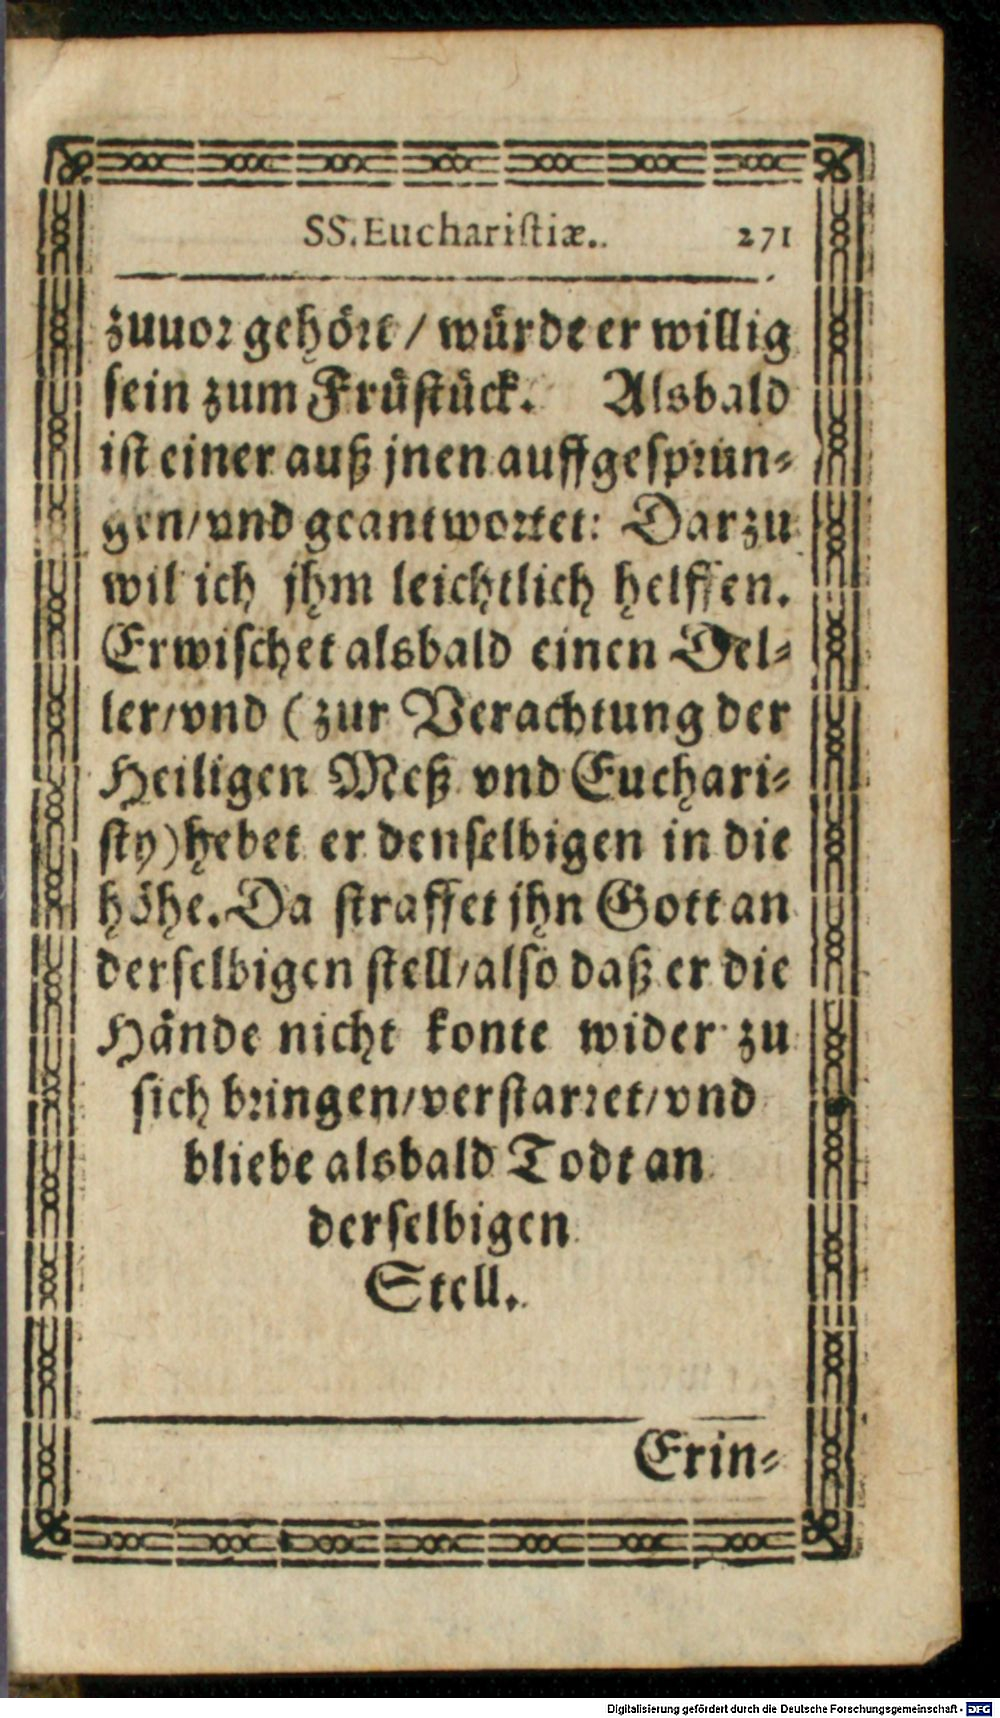 SS. Euchariſtiæ. 271
zuuor gehört / würde er willig
ſein zum Früſtück. Alsbald
iſt einer auß jnen auffgeſprun-
gen/vnd geantwortet: Darzu
wil ich jhm leichtlich helffen.
Erwiſchet alsbald einen Del-
ler/vnd (zur Verachtung der
Heiligen Meß vnd Euchari-
ſty) hebet er denſelbigen in die
höhe. Da ſtraffet jhn Gott an
derſelbigen ſtell/alſo daß er die
Hände nicht konte wider zu
ſich bringen/verſtarret/vnd
bliebe alsbald Todt an
derſelbigen
Stell.
Erin-
Digitalisierung gefördert durch die Deutsche Forschungsgemeinschaft - DFG